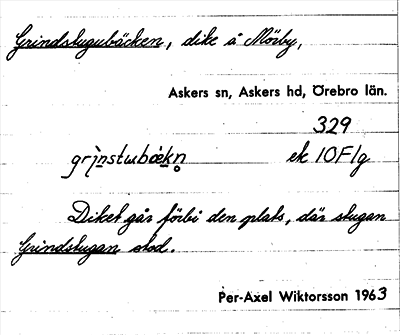 Grindstugubäcken, dike å Mörby,
Askers sn, Askers hd, Örebro län.
329
grı̣nstɯbɷekn̥ ek 10F1g
Diket går förbi den plats, där stugan
Grindstugan stod.
Per-Axel Wiktorsson 1963